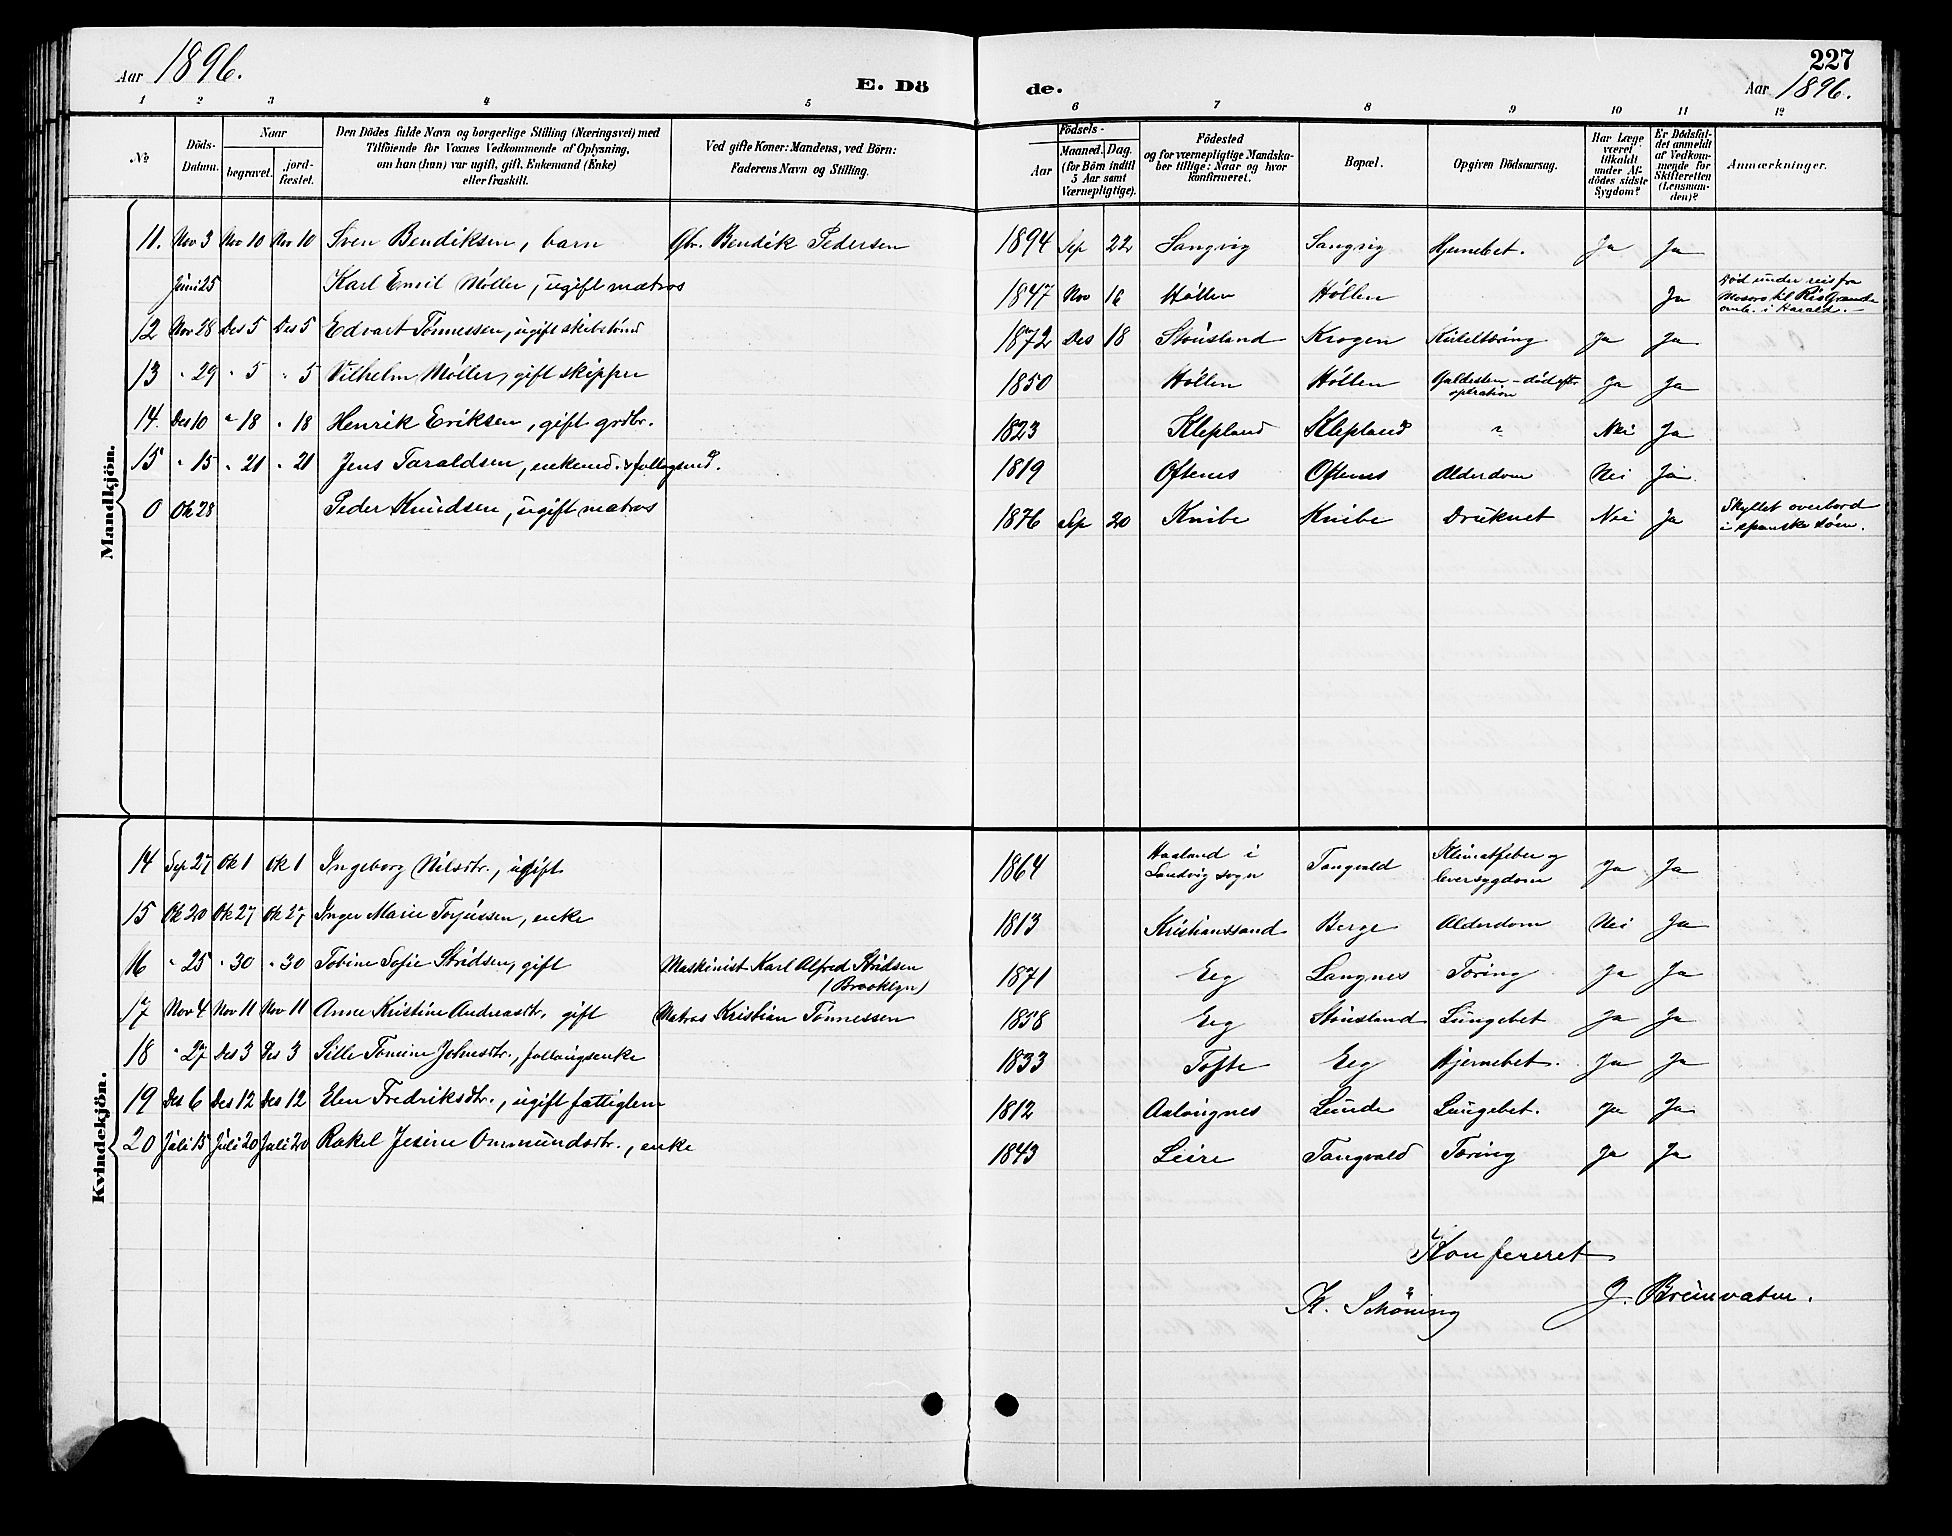 Aar 1896.
E. Dö
de.
227
Aar 1896.
1 2 3 4 5 6 7 8 9 10 11 12
No
Döds-
Datum.
Naar
begravet.
jord-
fæstet.
Den Dödes fulde Navn og borgerlige Stilling (Næringsvei) med
Tilföiende for Voxnes Vedkommende af Oplysning,
om han (hun) var ugift, gift, Enkemand (Enke)
eller fraskilt.
Ved gifte Koner: Mandens, ved Börn:
Faderens Navn og Stilling.
Födsels-
Aar
Maaned. Dag.
(for Börn indtil
5 Aar samt
Værnepligtige).
Födested
og for værnepligtige Mandska-
ber tillige: Naar og hvor
konfirmeret.
Bopæl.
Opgiven Dödsaarsag.
Har Læge
været
tilkaldt
under Af-
dödes sidste
Sygdom?
Er Dödsfal-
det anmeldt
af Vedkom-
mende for
Skifteretten
(Lensman-
den)?
Anmærkninger.
Mandkjön.
11. Nov 3 Nov 10 Nov 10 Sven Bendiksen, barn Gbr. Bendik Pedersen 1894 Sep 22 Langvig Langvig Hjernebet. Ja Ja
Juni 25 Karl Emil Møller, ugift matros 1847 Nov 16 Höllen Höllen Ja Död under reis fra
Mosoro til Rio Grande
omb. i Harald.
12 Nov 28 Des 5 Des 5 Edvart Tönnessen, ugift skibstömd 1872 Des 18 Stöusland Krogen Kuteltæring Ja Ja
13 " 29 " 5 " 5 Vilhelm Møller, gift skipper 1850 Höllen Höllen Galdesten - död efter
operation Ja Ja
14. Des 10 " 18 " 18 Henrik Eriksen, gift grdbr. 1823 Klepland Klepland " Nei Ja
15 " 15 " 21 " 21 Jens Taraldsen, enkemd. & follagsmd. 1819 Oftenes Oftenes Alderdom Nei Ja
0 Ok 28 Peder Knudsen, ugift matros 1876 Sep 20 Knibe Knibe Druknet Nei Ja Skyllet overbord
i spanske söen.
Kvindekjön.
14 Sep 27 Ok 1 Ok 1 Ingeborg Nilsdtr., ugift 1864 Haaland i
Landvig sogn Tangvald Klimatfeber og
leversygdom Ja Ja
15 Ok 20 Ok 27 Ok 27 Inger Marie Torjussen, enke 1813 Kristianssand Berge Alderdom Nei Ja
16 " 25 " 30 " 30 Tobine Sofie Stridsen, gift Maskinist Karl Alfred Stridsen
(Brooklyn) 1871 Eeg Langnes Tæring Ja Ja
17 Nov 4 Nov 11 Nov 11 Anne Kristine Andreasdtr. gift Matros Kristian Tönnessen 1858 Eeg Stöusland Lungebet Ja Ja
18 " 27 Des 3 Des 3 Sille Tomine Johnsdtr., follaugsenke 1833 Tofte Eeg Hjernebet. Ja Ja
19 Des 6 Des 12 Des 12 Elen Fredriksdtr., ugift fattiglem 1812 Aalougnes Lunde Lungebet. Ja Ja
20 Juli 15 Juli 20 Juli 20 Rakel Jesine Ommundsdtr., enke 1843 Leire Tangvald Tæring Ja Ja
Konfereret
K. Schöning J. Breinvatn.